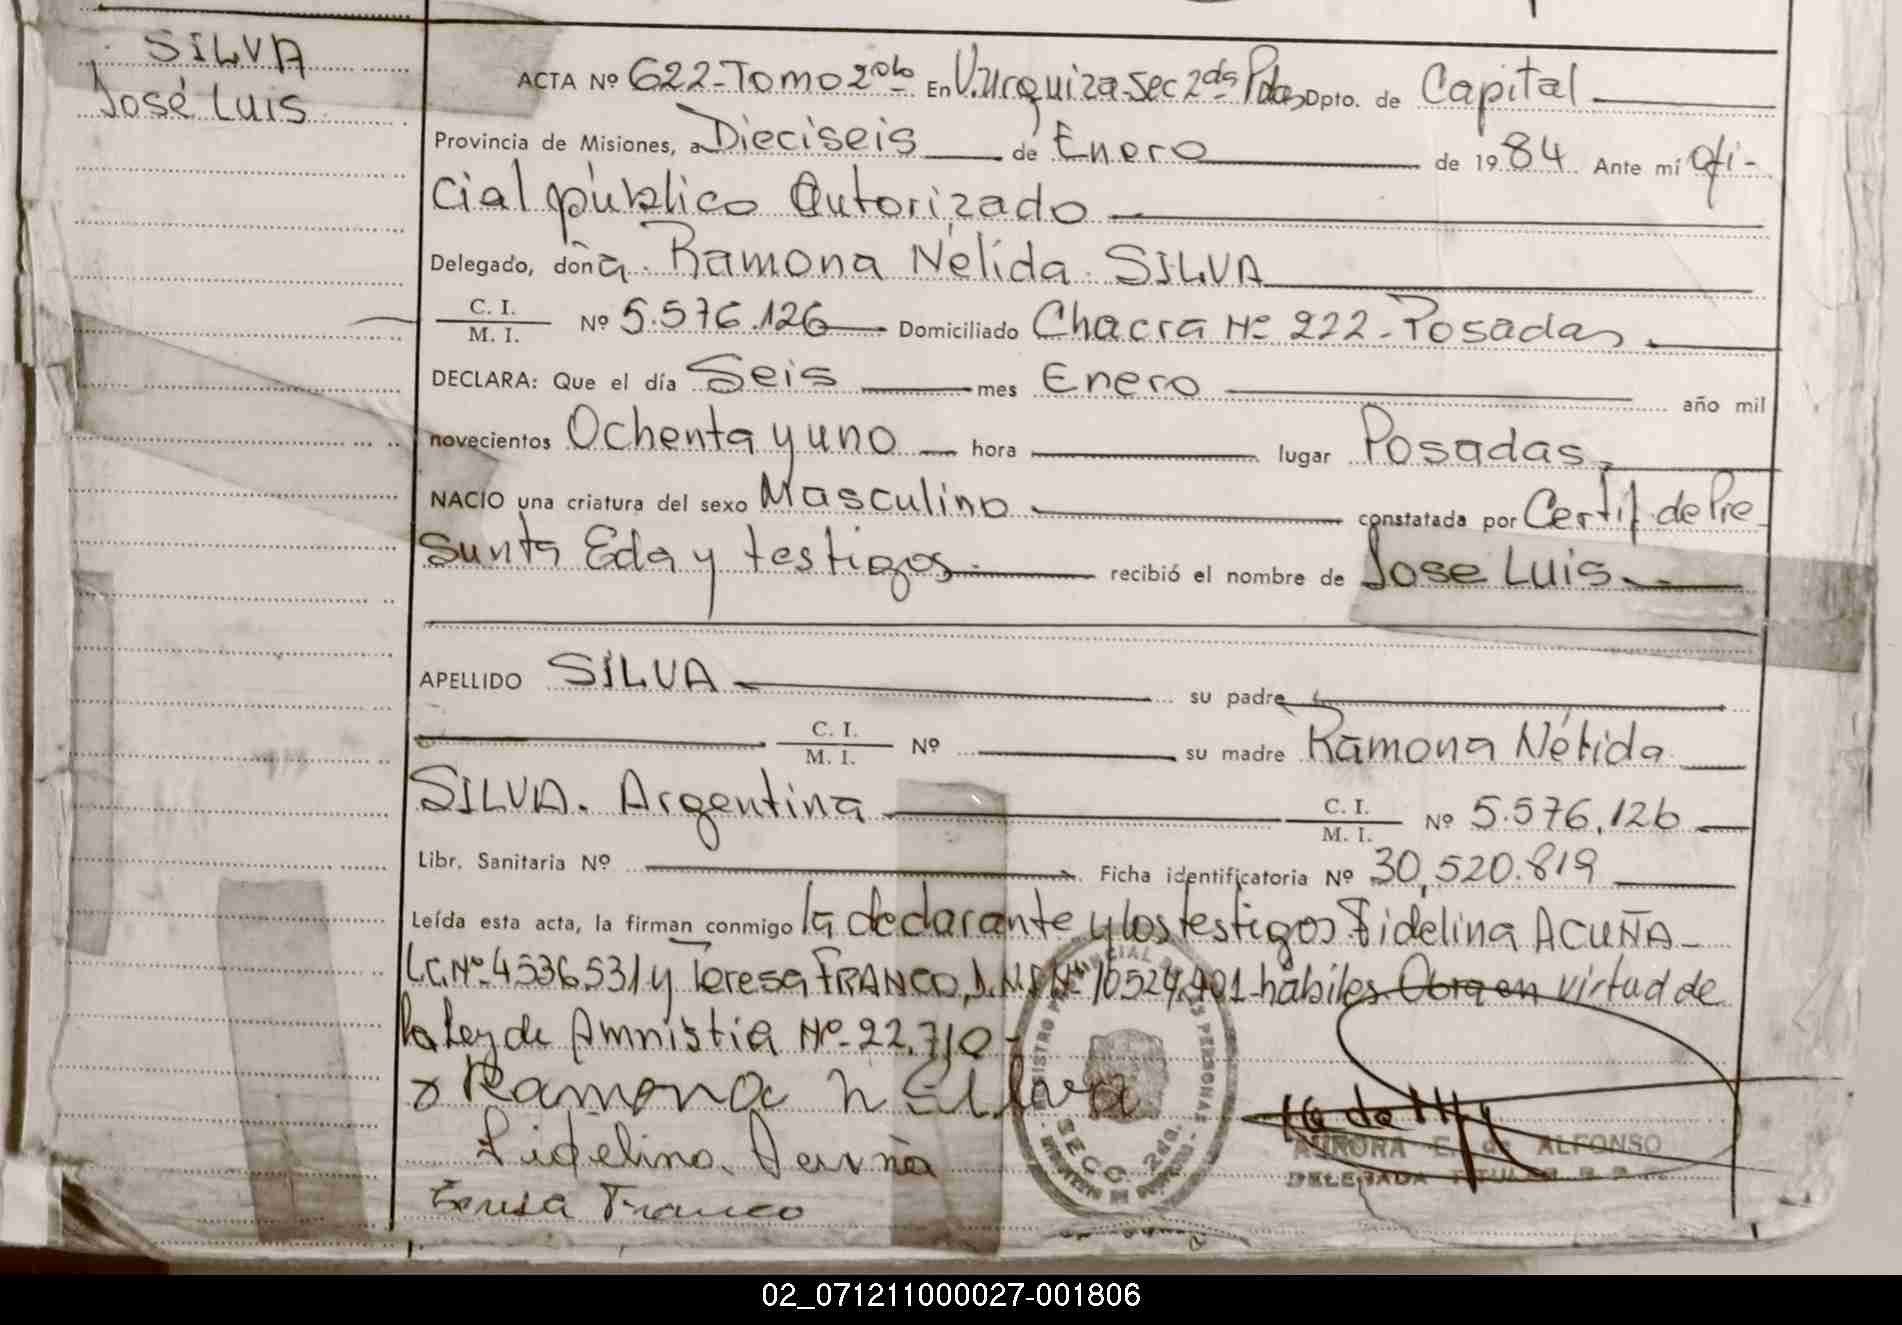 SILVA
José Luis
ACTA Nº 622-Tomo 2do En V.Urquiza-Sec 2da Pdas Dpto. de Capital
Provincia de Misiones, a Dieciseis de Enero de 1984 Ante mí ofi-
cial público Autorizado
Delegado, doña Ramona Nélida SILVA
C. I.
M. I. Nº 5.576.126 Domiciliado Chacra Nº 222-Posadas
DECLARA: Que el día Seis mes Enero año mil
novecientos Ochenta y uno hora lugar Posadas
NACIO una criatura del sexo Masculino constatada por Certif de Pre
Sunta Eda y testigos recibió el nombre de Jose Luis
APELLIDO SILVA su padre
C. I.
M. I. Nº su madre Ramona Nélida
SILVA. Argentina C. I.
M. I. Nº 5.576.126
Libr. Sanitaria Nº Ficha identificatoria Nº 30,520.819
Leída esta acta, la firman conmigo la declarante y los testigos Fidelina ACUÑA-
LC.Nº 4536531 y Teresa FRANCO, D.N.I Nº 10524.901-hábiles Obra en virtud de
la Ley de Amnistia Nº-22.710-
Ramona N Silva
Fidelina Acuña
Teresa Franco
REGISTRO PROVINCIAL DE LAS PERSONAS
SECC. 2da.
AURORA E. de ALFONSO
DELEGADA TITULAR
02_071211000027-001806